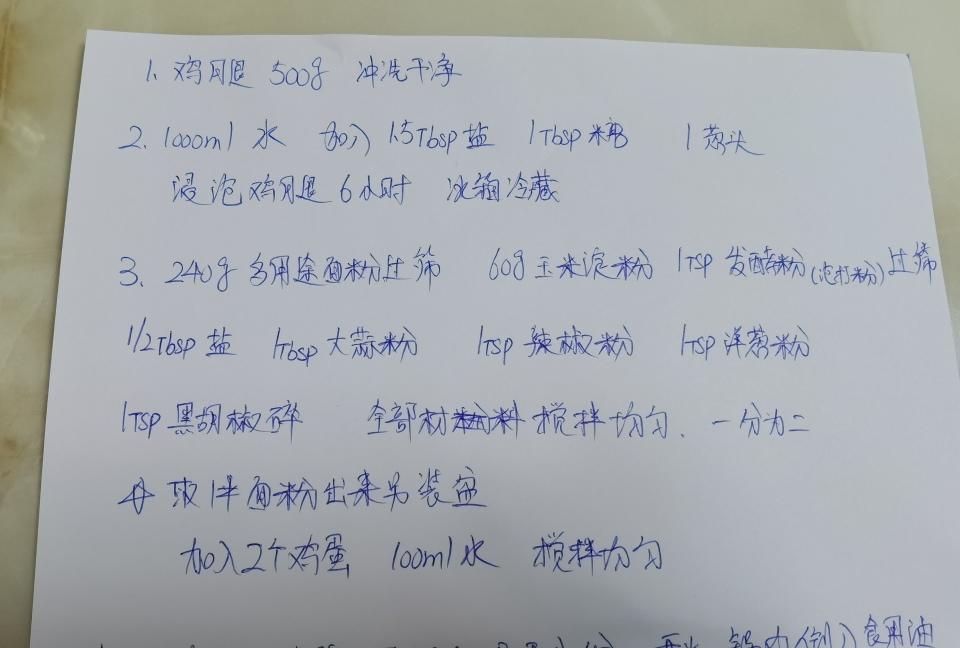 1. 鸡腿 500g 冲洗干净
2. 1000ml 水 加入 1.5Tbsp 盐 1Tbsp 糖 1葱头
浸泡鸡腿 6小时 冰箱冷藏
3. 240g 多用途面粉过筛 60g 玉米淀粉 1TSP 发酵粉(泡打粉)过筛
1/2Tbsp 盐 1Tbsp 大蒜粉 1TSP 辣椒粉 1TSP 洋葱粉
1TSP 黑胡椒碎 全部材料 搅拌均匀. 一分为二
4 取1半面粉出来另装盆
加入2个鸡蛋 100ml水 搅拌均匀
锅内倒入食用油